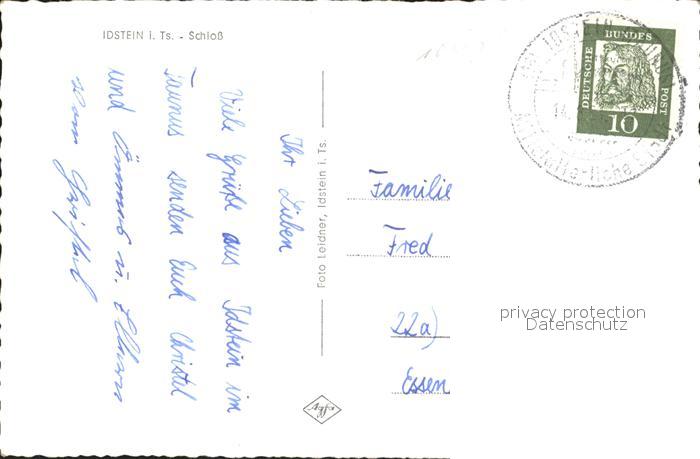 IDSTEIN i. Ts. - Schloß
Ihr Lieben
Viele Grüße aus Idstein im
Taunus senden Euch Christel
und
vom
Foto Leidner, Idstein i. Ts.
Agfa
Familie
Fred
22a)
Essen
IDSTEIN
DEUTSCHE BUNDESPOST
10
privacy protection
Datenschutz